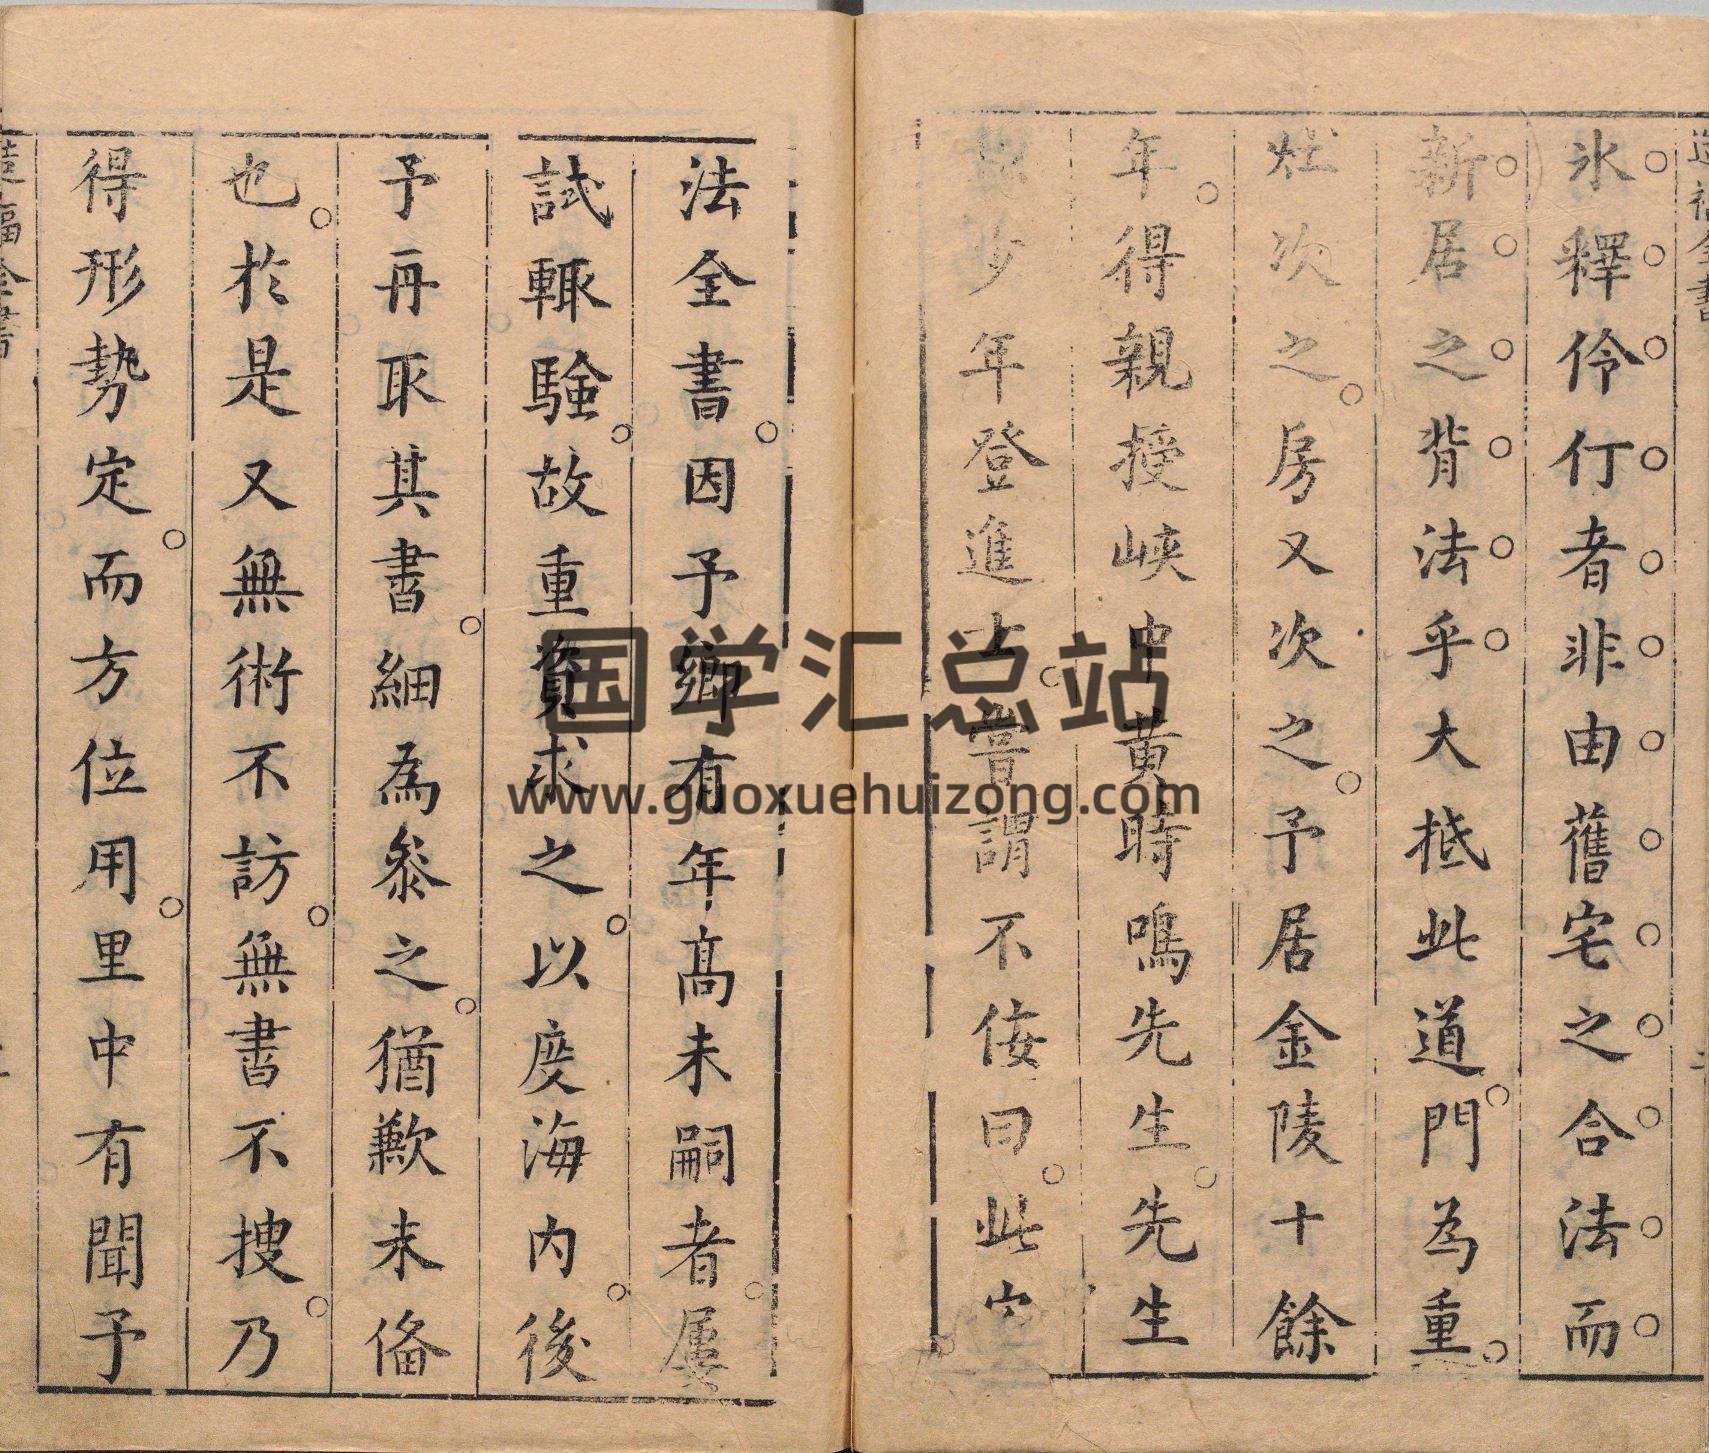 氷釋伶仃者非由舊宅之合法而
新居之背法乎大抵此道門為重
灶次之房又次之予居金陵十餘
年得親授峽中黄時鳴先生先生
少年登進士嘗謂不佞曰此宅
法全書因予鄉有年高未嗣者屢
試輙験故重資求之以度海内後
予再取其書細為叅之猶歉未備
也於是又無術不訪無書不搜乃
得形勢定而方位用里中有聞予
福全書
国学汇总站
www.guoxuehuizong.com